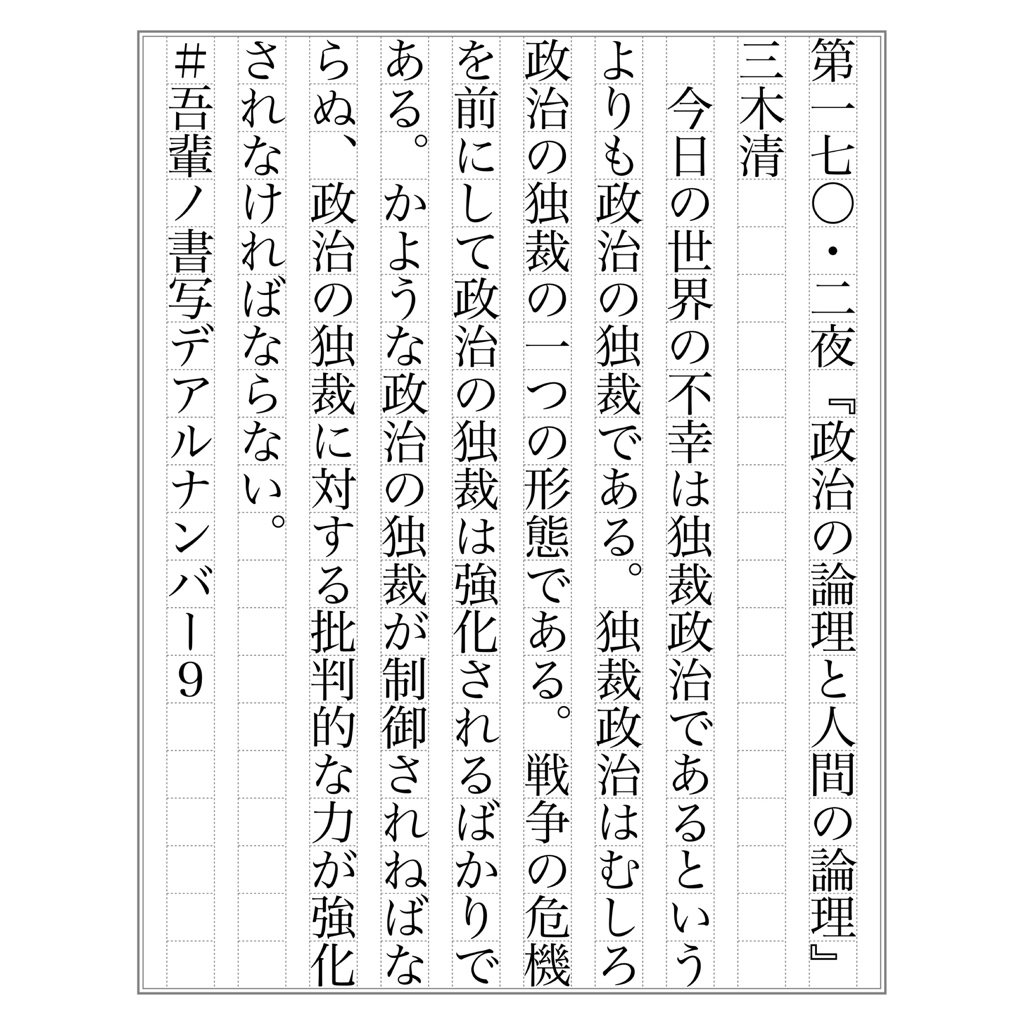 第一七〇・二夜『政治の論理と人間の論理』
三木清
　今日の世界の不幸は独裁政治であるという
よりも政治の独裁である。独裁政治はむしろ
政治の独裁の一つの形態である。戦争の危機
を前にして政治の独裁は強化されるばかりで
ある。かような政治の独裁が制御されねばな
らぬ、政治の独裁に対する批判的な力が強化
されなければならない。
＃吾輩ノ書写デアルナンバー９